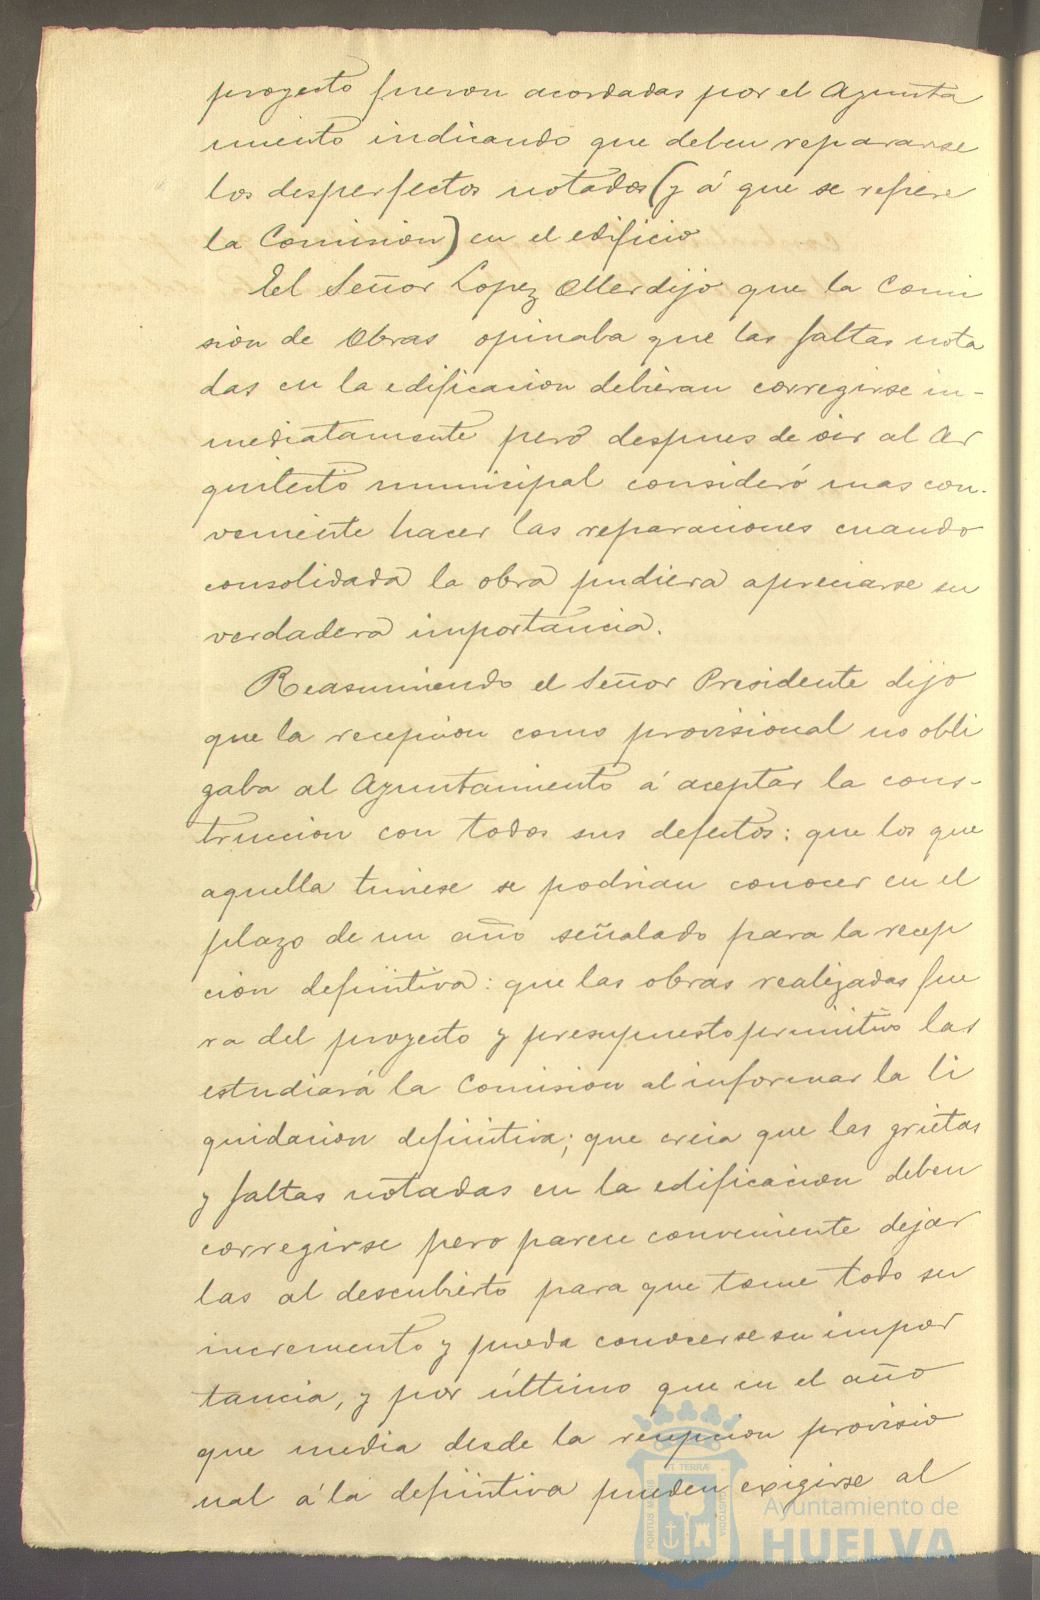 proyecto fueron acordadas por el Ayunta
miento indicando que deben repararse
los desperfectos notados (y á que se refiere
la Comision) en el edificio
El Señor Lopez Oller dijo que la Comi
sion de Obras opinaba que las faltas nota
das en la edificacion debieran corregirse in-
mediatamente pero despues de oir al Ar
quitecto municipal consideró mas con-
veniente hacer las reparaciones cuando
consolidada la obra pudiera apreciarse su
verdadera importancia.
Reasumiendo el Señor Presidente dijo
que la recepcion como provisional no obli
gaba al Ayuntamiento á aceptar la cons-
truccion con todos sus defectos: que los que
aquella tuviese se podrian conocer en el
plazo de un año señalado para la recep
cion definitiva: que las obras realizadas fue
ra del proyecto y presupuesto primitivo las
estudiará la Comision al informar la li
quidacion definitiva; que creia que las grietas
y faltas notadas en la edificacion deben
corregirse pero parece conveniente dejar
las al descubierto para que tome todo su
incremento y pueda conocerse su impor
tancia, y por último que en el año
que media desde la recepcion provisio
nal á la definitiva pueden exigirse al
Ayuntamiento de
HUELVA
PORTUS MARIS ET TERRÆ CUSTODIA